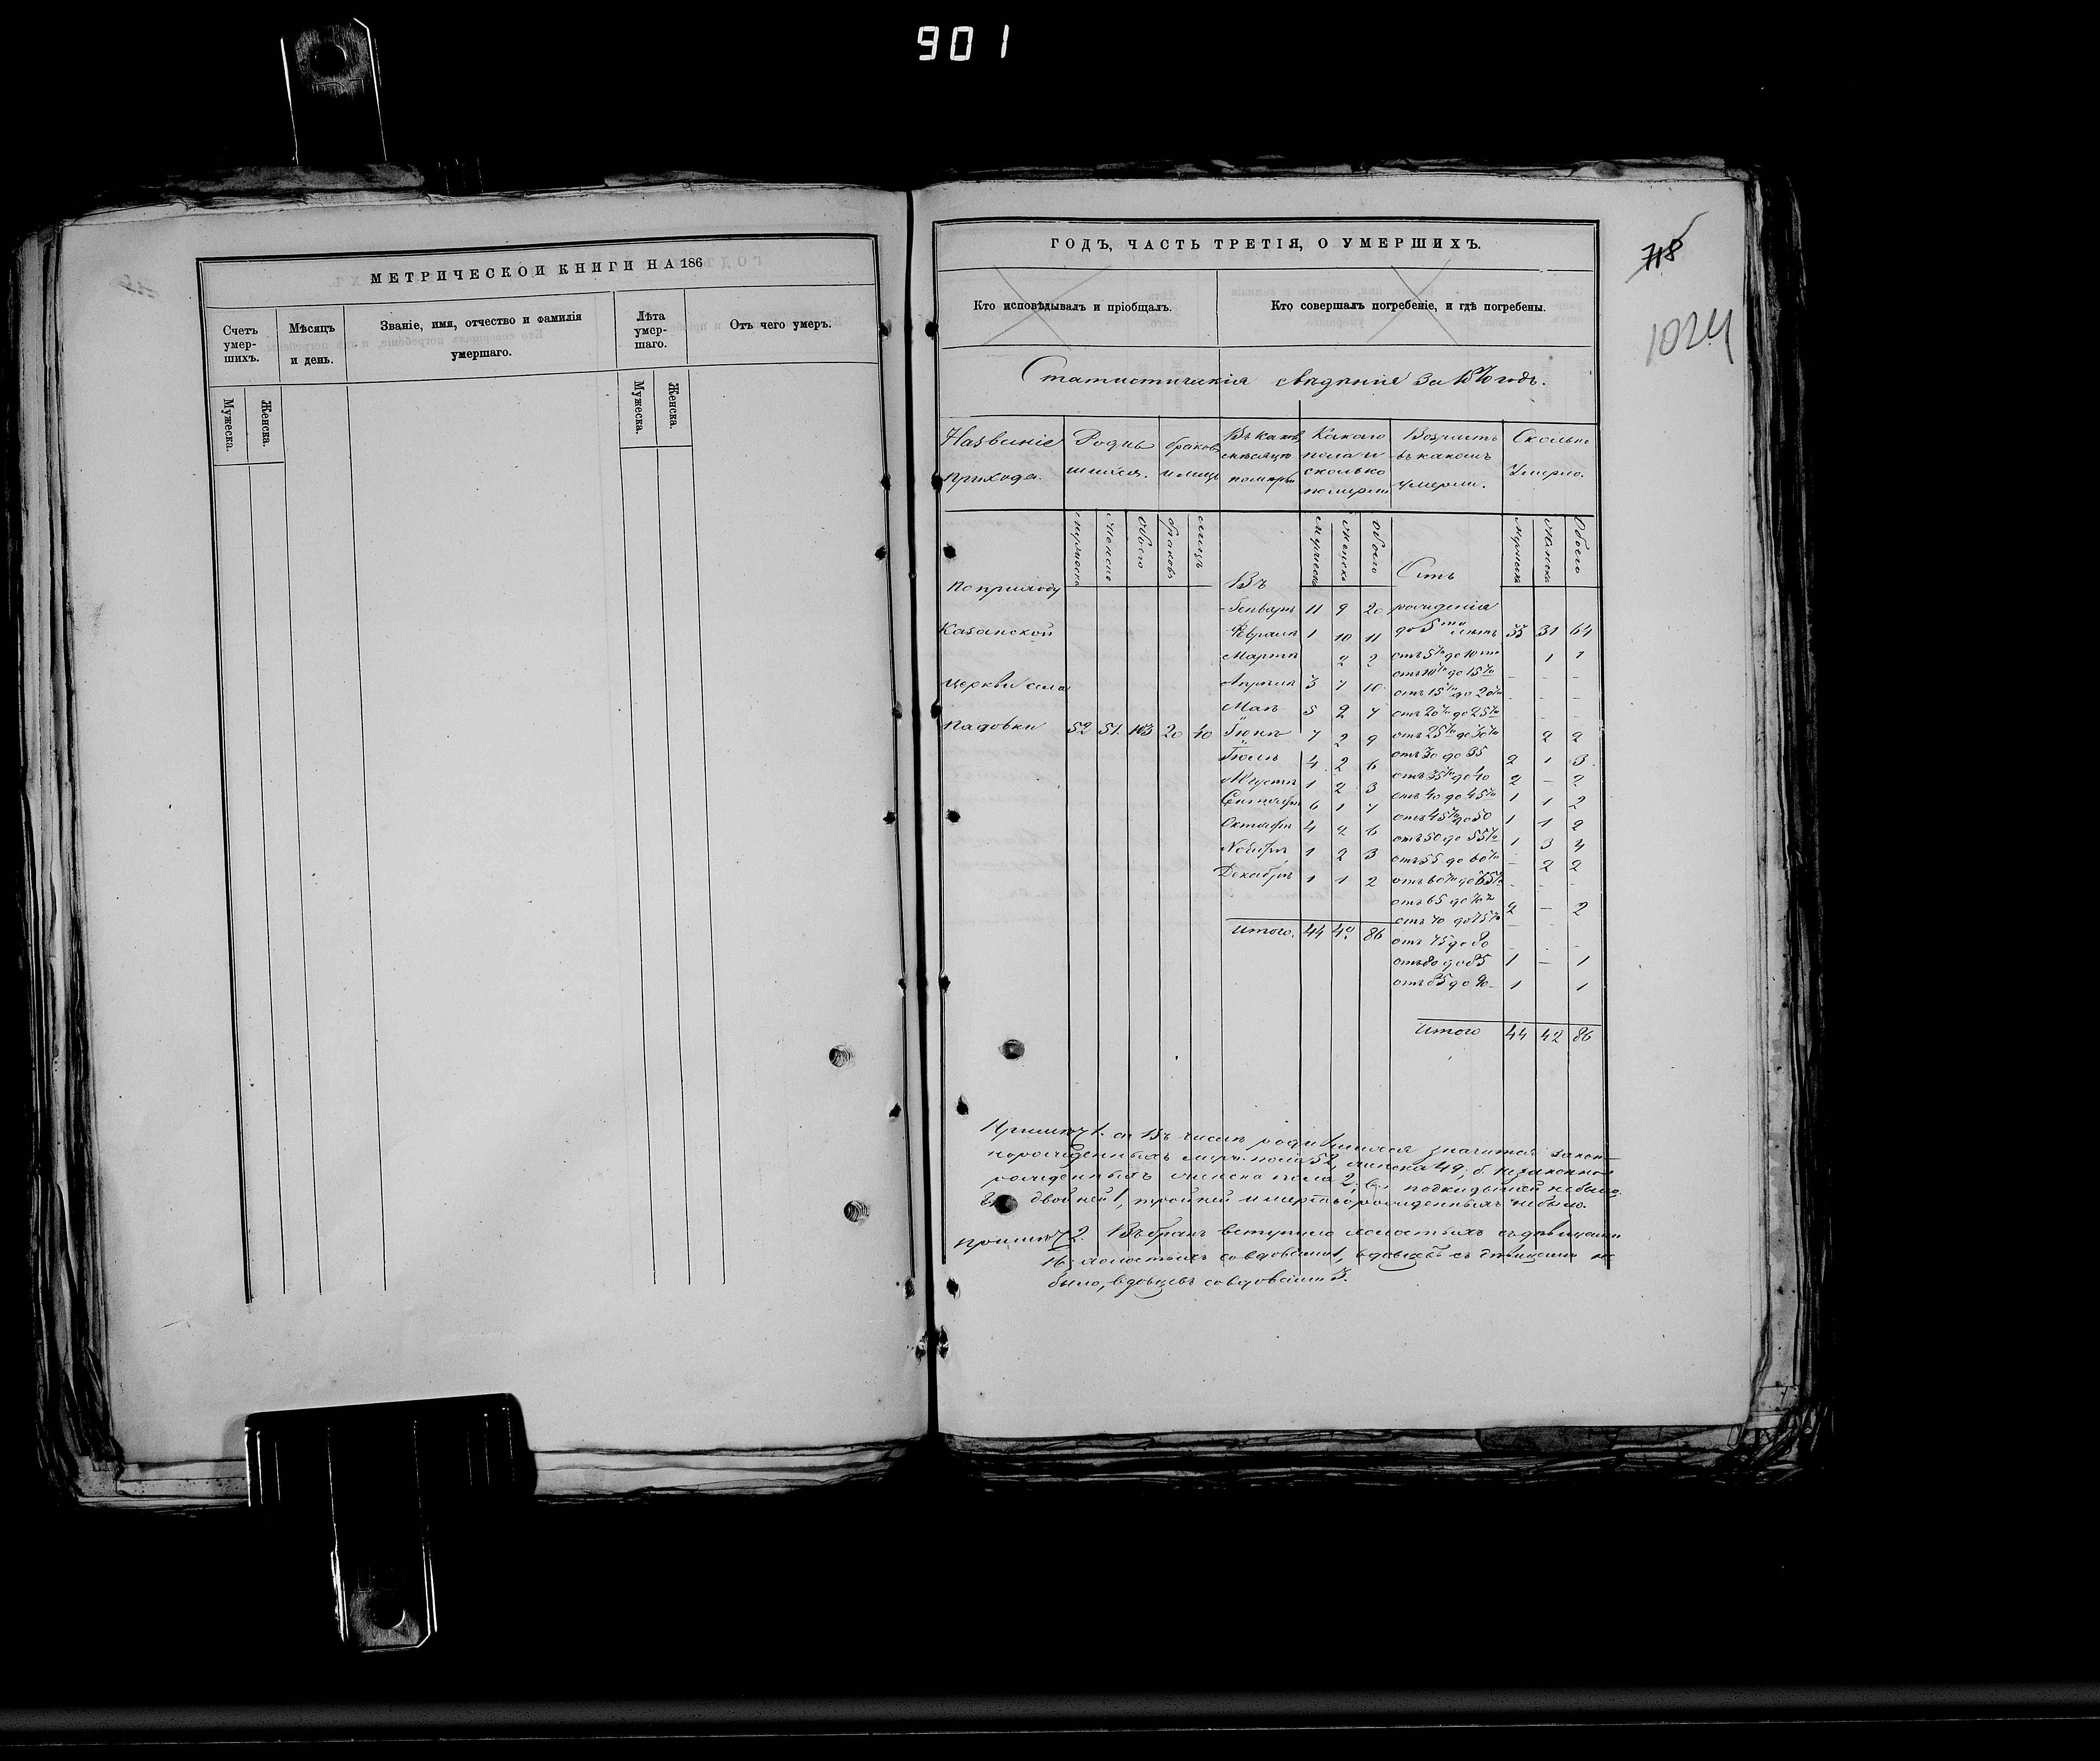 901
МЕТРИЧЕСКОЙ КНИГИ НА 186
Счетъ умер-шихъ.
Мѣсяцъ и день.
Званіе, имя, отчество и фамилія умершаго.
Лѣта умер-шаго.
Отъ чего умеръ.
Мужеска.
Женска.
Мужеска.
Женска.
ГОДЪ, ЧАСТЬ ТРЕТІЯ, О УМЕРШИХЪ.
718
1024
Кто исповѣдывалъ и пріобщалъ.
Кто совершалъ погребеніе, и гдѣ погребены.
Статистическія свѣденія за 1870 годъ.
Названіе прихода.
Родив шихся.
браковъ и лицъ
Въ какомъ мѣсяцѣ
Какого пола и сколько померли
Возрастъ въ какомъ умерли.
Сколько умерло.
мужеска женска обоего браковъ лицъ
мужеска женска обоего
мужеска женска обоего
По приходу
Казанской
церкви села
Падовки 52 51 103 20 40
Въ
Генварѣ 11 9 20
Февралѣ 1 10 11
Мартѣ 2 2
Апрѣлѣ 3 7 10
Маѣ 5 2 7
Іюнѣ 7 2 9
Іюлѣ 4 2 6
Августѣ 1 2 3
Сентябрѣ 6 1 7
Октябрѣ 4 2 6
Ноябрѣ 1 2 3
Декабрѣ 1 1 2
Итого. 44 42 86
Отъ
рожденія
до 5ти лѣтъ 33 31 64
отъ 5ти до 10ти 1 1
отъ 10ти до 15ти - - -
отъ 15ти до 20ти - - -
отъ 20ти до 25ти - - -
отъ 25ти до 30ти 2 2
отъ 30 до 35 2 1 3
отъ 35ти до 40 2 - 2
отъ 40 до 45ти 1 1 2
отъ 45ти до 50 1 1 2
отъ 50 до 55ти 1 3 4
отъ 55 до 60ти - 2 2
отъ 60ти до 65ти - - -
отъ 65 до 70ти 2 - 2
отъ 70 до 75ти - - -
отъ 75 до 80 - - -
отъ 80 до 85 1 - 1
отъ 85 до 90 1 1
Итого 44 42 86
Примѣч 1. а. Въ числѣ родившихся значится закон-
норожденныхъ муж. пола 52, женска 49; б. незаконно-
рожденныхъ женска пола 2; в. подкидышей не было
двойней 1, тройней и мертворожденныхъ не было.
Примѣч 2. Въ бракъ вступило холостыхъ съ дѣвицами
16, холостыхъ со вдовами 1, вдовцевъ съ дѣвицами не
было, вдовцевъ со вдовами 3.